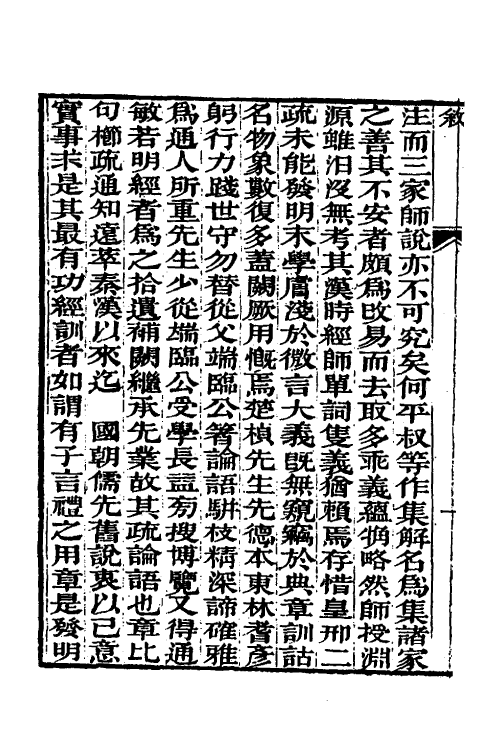 敘
注而三家師說亦不可究矣何平叔等作集解名爲集諸家
之善其不安者頗爲改易而去取多乖義蘊觕略然師授淵
源雖汩沒無考其漢時經師單詞隻義猶賴焉存惜皇邢二
疏未能發明末學膚淺於微言大義旣無窺竊於典章訓詁
名物象數復多蓋闕厥用慨焉楚楨先生先德本東林耆彥
躬行力踐世守勿替從父端臨公著論語駢枝精深諦確雅
爲通人所重先生少從端臨公受學長益旁搜博覽又得通
敏若明經者爲之拾遺補闕繼承先業故其疏論語也章比
句櫛疏通知遠萃秦漢以來迄　國朝儒先舊說衷以己意
實事求是其最有功經訓者如謂有子言禮之用章是發明